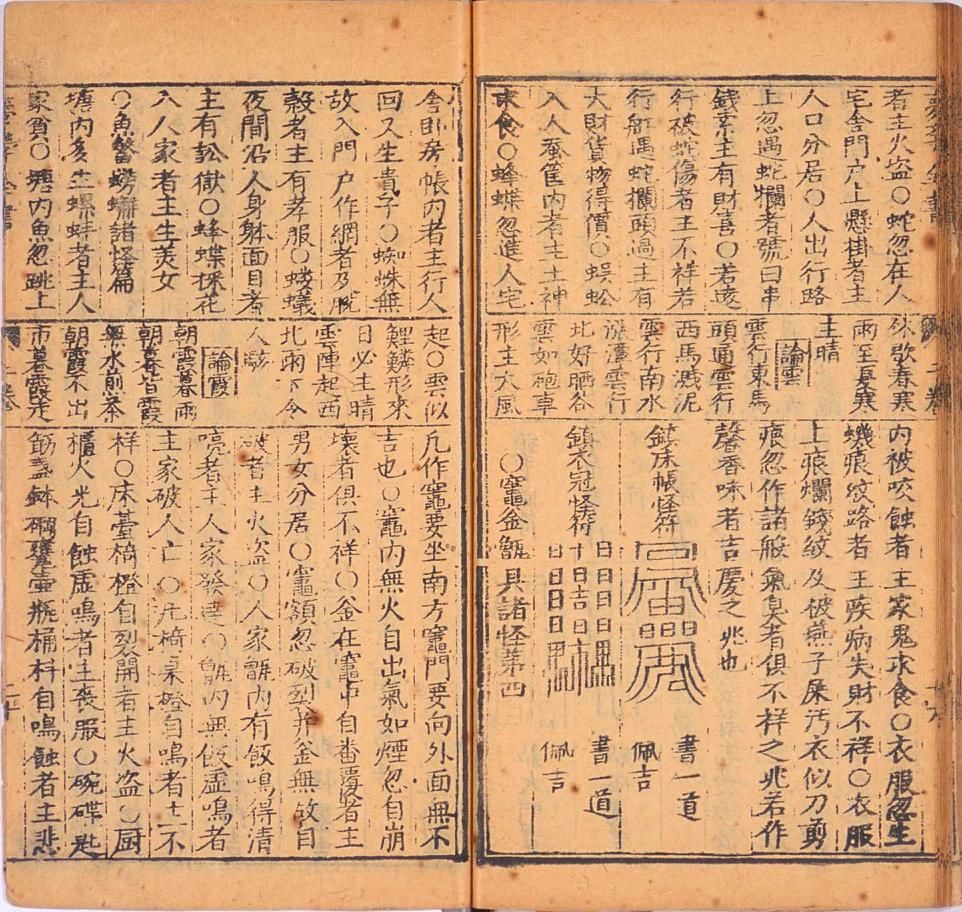 者主火盜○蛇忽在人
宅舍門户上懸掛者主
人口分居○人出行路
上忽遇蛇攔者號曰串
錢索主有財喜○若遠
行破蛇傷者主不祥若
行舡遇蛇攔頭過主有
大財貨物得價○蜈蚣
入人蚕筐內者主土神
求食○蜂蝶忽進人宅
休歇春寒
雨至夏寒
主晴
論雲
雲行東馬
頭通雲行
西馬濺泥
雲行南水
漲潭雲行
北好晒谷
雲如砲車
形主大風
內被咬蝕者主家鬼求食○衣服忽生
蟣痕紋路者主疾病失財不祥○衣服
上痕爛錢紋及被燕子屎汚衣似刀剪
痕忽作諸般氣臭者俱不祥之兆若作
馨香味者吉慶之兆也
鎮床帳怪符
書一道
佩吉
鎮衣冠怪符
書一道
佩吉
○竈釜甑具諸怪苐四
舍卧房帳內者主行人
回又生貴子○蜘蛛無
故入門户作網者及脫
殼者主有孝服○螻蟻
夜間沿人身躰面目者
主有訟獄○蜂蝶採花
入人家者主生美女
○魚鱉螃蠏諸怪篇
塘內多生螺蚌者主人
家貧○塘内魚忽跳上
起○雲似
鯉鱗形來
日必主晴
雲陣起西
北雨下令
人駭
論霞
朝霞暮雨
朝暮皆霞
無水煎茶
朝霞不出
市暮霞走
凢作竈要坐南方竈門要向外面無不
吉也○竈内無火自出氣如煙忽自崩
壞者俱不祥○釜在竈中自番覆者主
男女分居○竈額忽破裂并釜無故自
破者主火盜○人家甑内有飯鳴得清
喨者主人家發達○甑内無飯虛鳴者
主家破人亡○凢椅桌橙自鳴者主不
祥○床薹椅橙自裂開者主火盜○厨
櫃火光自蝕虛鳴者主喪服○碗碟匙
筯盞鉢碙甕壷瓶桶料自鳴蝕者主悲